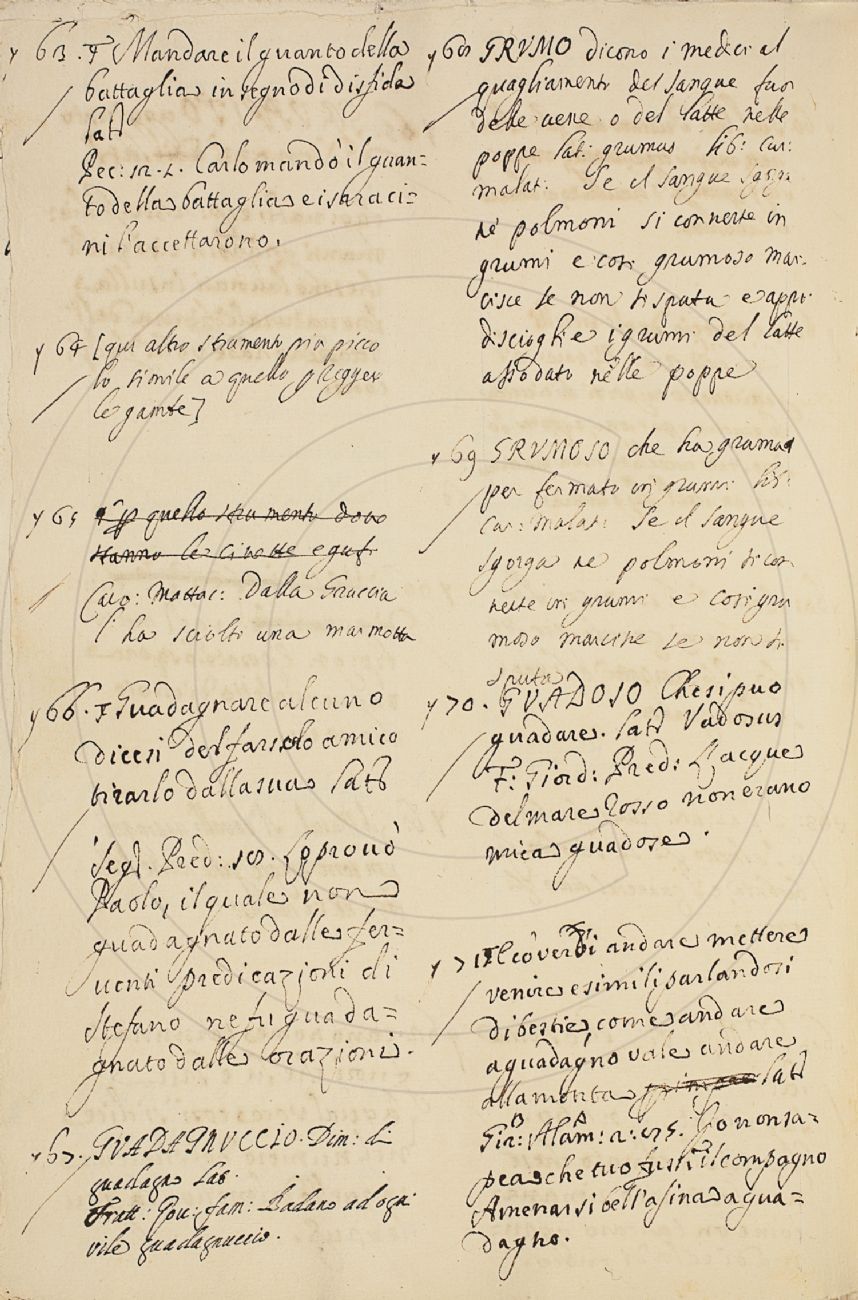 63. Mandare il guanto della
battaglia in segno di disfida
Lat
Pec: 12. 2. Carlo mandò il guan=
to della battaglia e i saraci=
ni l'accettarono.
64 [qui altro strumento più picco
lo simile a quello p regger
le gambe]
65 p quello strumento dove
stanno le civette e gufi
Caro: Mattac: Dalla Gruccia
l'ha sciolti una marmotta
66. Guadagnare alcuno
dicesi del farselo amico
tirarlo dalla sua Lat
Segl. Pred: Lo provò
Paolo, il quale non
guadagnato dalle fer=
uenti predicazioni di
Stefano ne fu guada=
gnato dalle orazioni.
67. GUADAGNUCCIO. Dim: di
guadagno Lat.
Tratt: Gou: fam: Badano ad ogni
vile guadagnuccio.
68 GRVMO dicono i medici al
quagliamento del sangue fuor
delle uene o del latte nelle
poppe Lat: grumus Lib: cur:
malat: Se il sangue sgorga
ne polmoni si conuerte in
grumi e così grumoso mar-
cisce se non si sputa e appr:
discioglie i grumi del latte
assodato nelle poppe
69 GRVMOSO che ha gruma
per fermato in grumi Lib:
cur: malat: Se il sangue
sgorga ne polmoni si con
uerte in grumi e cosi gru
moso marcisce se non si
sputa
70. GVADOSO Che si puo
guadare. Lat Vadosus
F: Giord: Pred: L'acque
del mare Rosso non erano
mica guadose.
71 Il co verbi andare mettere
venire e simili parlandosi
di bestie, come andare
a guadagno vale andare
alla monta Lat
Gir: Alam: 2: Io non sa=
pea che tuo fussi il compagno
A menarsi dell'asina a gua=
dagno.